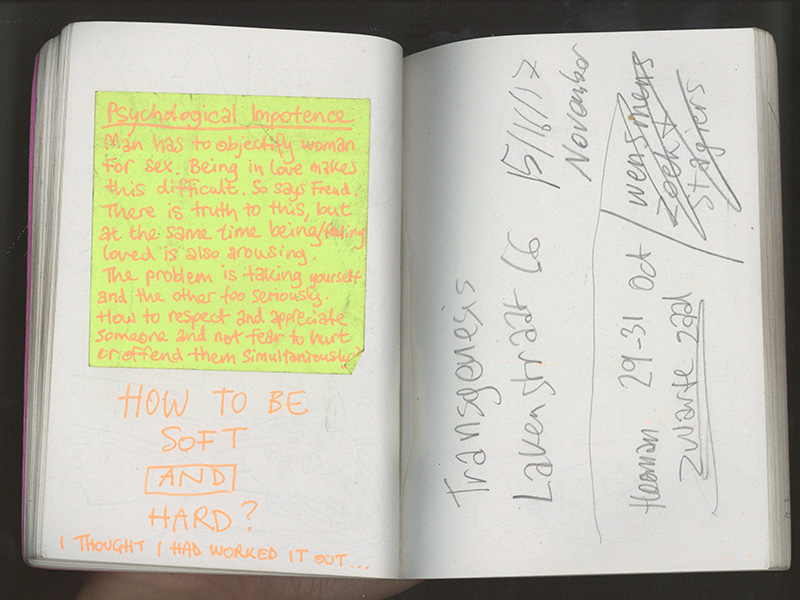 Psychological Impotence
Man has to objectify woman
for sex. Being in love makes
this difficult. So says Freud
There is truth to this, but
at the same time being/feeling
loved is also arousing.
The problem is taking yourself
and the other too seriously.
How to respect and appreciate
someone and not fear to hurt
or offend them simultaniously?
HOW TO BE
SOFT
AND
HARD?
I THOUGHT I HAD WORKED IT OUT...
Transgenesis
Lakenstraat 66 15/16/17
November
29-31 Oct / wensmens
zoekt
stagiers
zwarte zaal